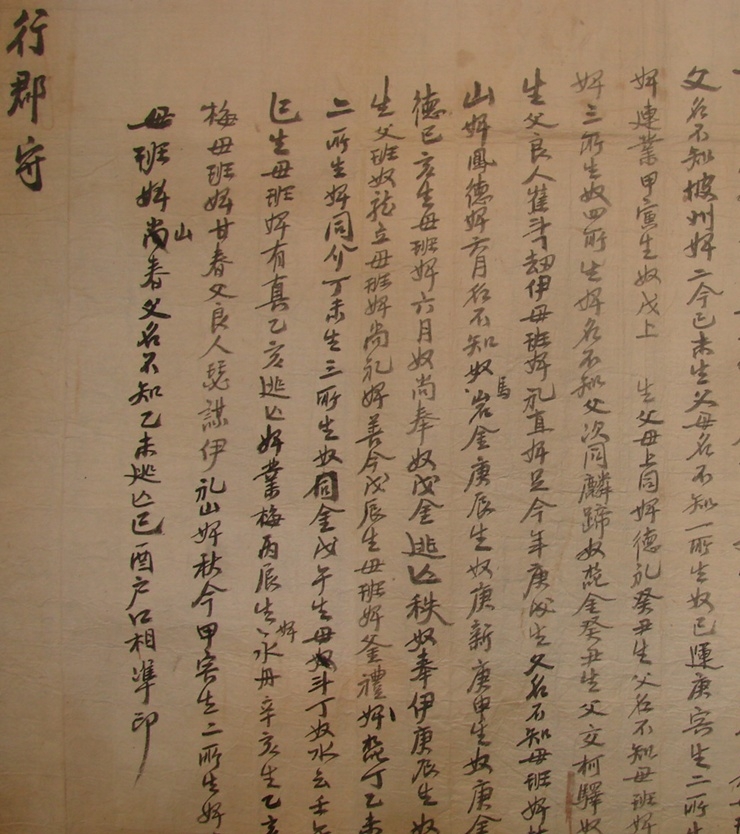 父名不知披州婢二今己未生父母名不知一所生奴已連庚寅生二所生
婢連業甲寅生奴戊上 生父母上同婢德礼癸丑生父名不知母班婢
婢三所生奴四所生婢名不知父次同麟蹄奴 金癸丑生父交柯驛奴
生父良人崔斗劫伊母班婢礼直婢足今年庚戌生父名不知母班婢
山婢鳳德婢六月名不知奴馬岩金庚辰生奴庚新庚申生奴庚金
德已亥生母班婢六月奴尚奉奴戊金逃亡秩奴奉伊庚辰生奴
生父班奴龍立母班婢尚礼婢善今戊辰生母班婢釜禮婢 丁乙未
二所生婢同介丁未生三所生奴同金戊午生母奴斗丁奴水云壬午
亡生母班婢有真乙亥逃亡婢業梅丙辰生婢永丹辛亥生乙亥
梅母班婢甘春父良人 謀伊礼山婢秋今甲寅生二所生婢
母班婢尚山春父名不知乙未逃亡己酉戶口相準印
行郡守